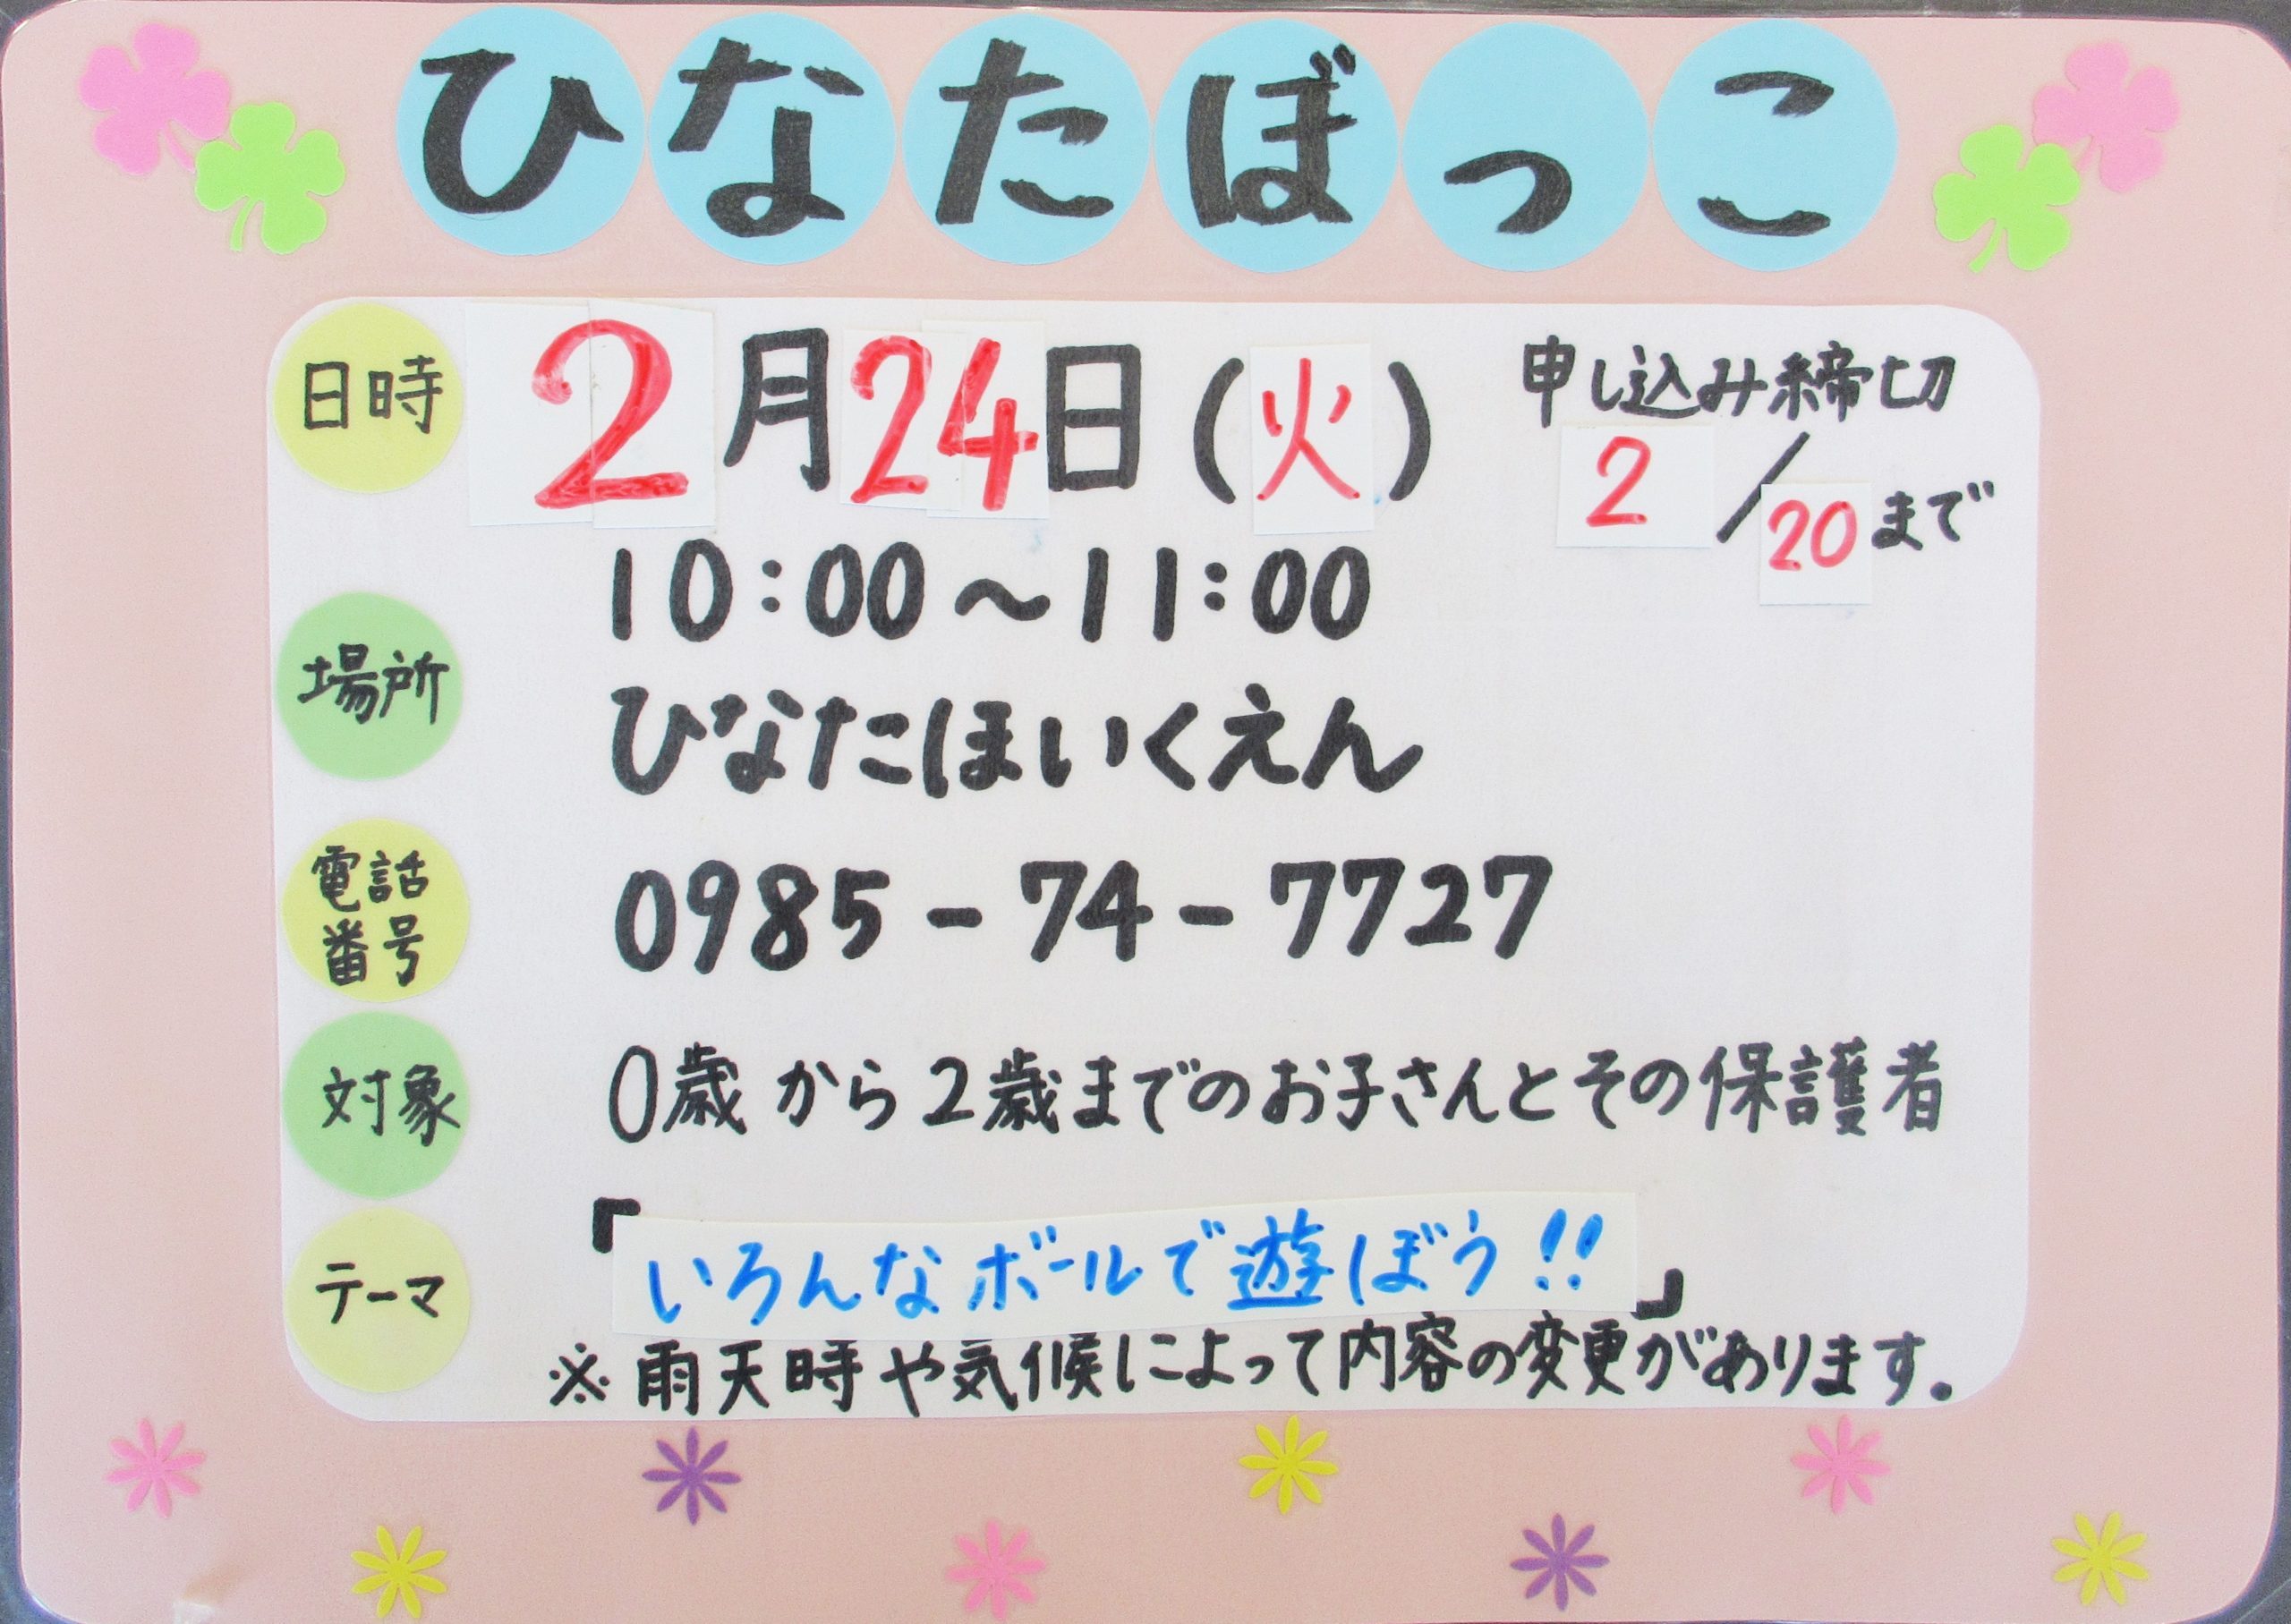 ひなたぼっこ
日時
2月24日(火)
申し込み締切
2/20まで
10:00～11:00
場所
ひなたほいくえん
電話
番号
0985-74-7727
対象
0歳から2歳までのお子さんとその保護者
テーマ
「いろんなボールで遊ぼう!!」
※雨天時や気候によって内容の変更があります。